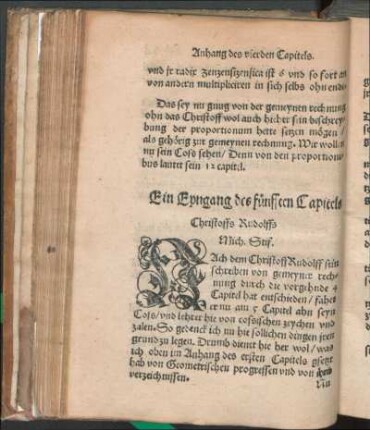 Anhang des vierden Capitels.
vnd jr radix zenzensizensica ist 6 vnd so fort an
von andern multipliciren in sich selbs ohn ende.
Das sey nu gnug von der gemeynen rechnung
ohn das Christoff wol auch hieher sein beschrey/
bung der proportionum hette setzen mögen /
als gehörig zur gemeynen rechnung. Wir wollen
nu sein Coss sehen/ Denn von den proportioni/
bus lautet sein 12 capitel.
Ein Eyngang des fünfften Capitels
Christoffs Rudolffs
Mich. Stif.
NAch dem Christoff Rudolff sein
schreiben von gemeyner rech/
nung durch die vorgehnde 4
Capitel hat entschieden / fahet
er nu am 5 Capitel ahn seyn
Coss/ vnd lehret hie von cossischen zeychen vnd
zalen. So gedenck ich nu hie sollichen dingen jren
grund zu legen. Drumb dienet hie her wol/ was
ich oben im Anhang des ersten Capitels gesagt
hab von Geometrischen progressen vnd von jhren
verzeichnissen.